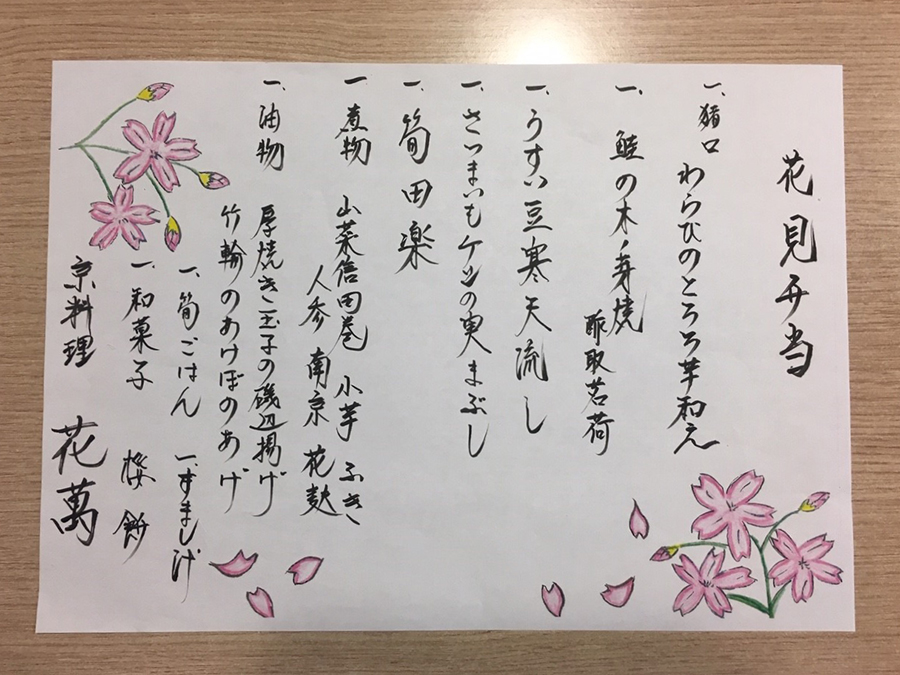 花見弁当
一、猪口
わらびのとろろ芋和え
一、鮭の木ノ芽焼
酢取茗荷
一、うすい豆寒天流し
一、さつまいもケシの実まぶし
一、筍田楽
一 煮物 山菜信田巻 小芋 ふき
人参 南京 花麩
一、油物 厚焼き玉子の磯辺揚げ
竹輪のあけぼのあげ
一、筍ごはん 一、すまし汁
一、和菓子 桜餅
京料理 花萬